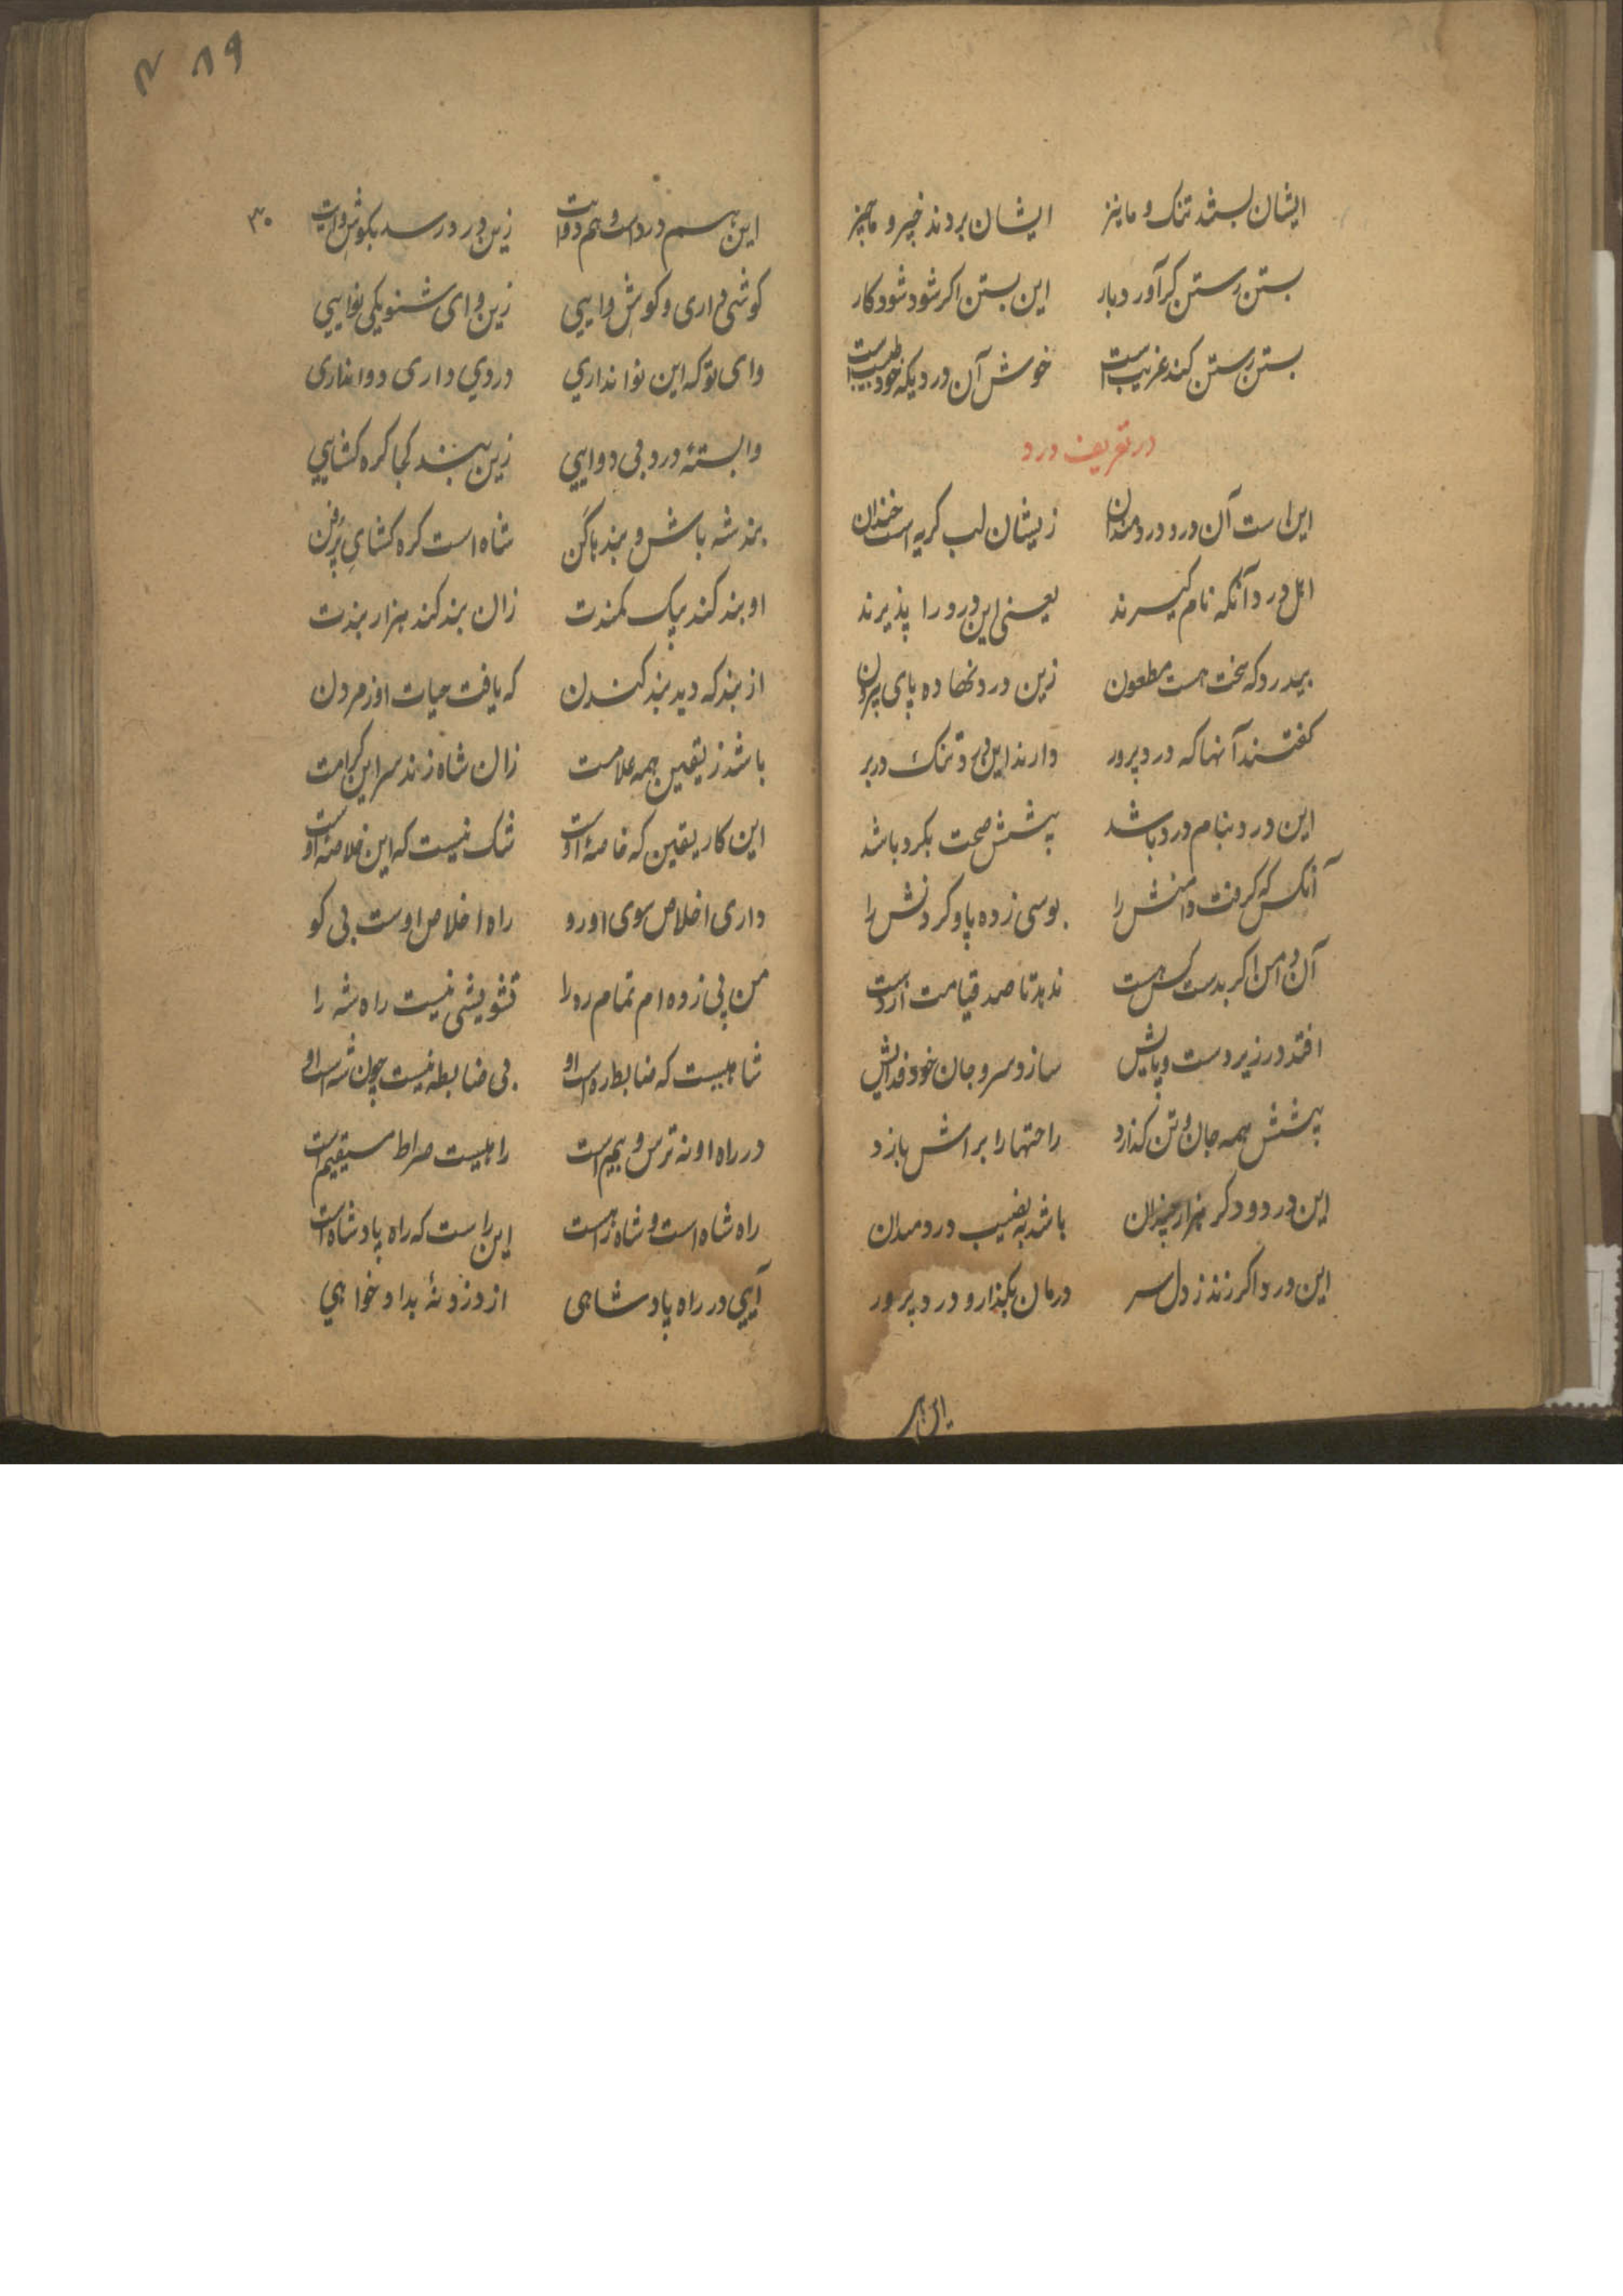 ایشان بستند تنک و ما نیز ایشان بردند خیر و ما چیز
بستن رستن کرآورد بار این بستن اکر شود شود کار
بستن رستن کند غریب است خوش آن دردیکه خود طبیب است
در تعریف درد
این است آن درد دردمندان زیشان لب کریه است خندان
اهل درد آنکه نام کیرند یعنی این درد را پذیرند
بیدرد که سخت هست مطعون زین درد نهاده پای بیرون
کفتند آنها که درد پرور دارند این درد تنک در بر
این درد بنام درد باشد پیشش صحت بکرد باشد
آنکس که کرفت دامنش را بوسی زده پا و کردنش را
آن دامن اکر بدست کس هست ندهد تا صد قیامت از دست
افتد در زیر دست و پایش سازد سر و جان خود فدایش
پیشش همه جان و تن کذارد راحتها را براش بازد
این درد و دکر هزار چندان باشد به نصیب دردمندان
این درد اکر زند ز دل سر درمان بکذار و درد پرور
این هم
۸۹
این هم درد است و هم دوا است زین درد رسد بکوش وا است
۳۰
کوشی داری و کوش وایی زین وای شنو یکی نوایی
وای تو که این نوا نداری دردی داری دوا نداری
وابستهٔ درد بی دوایی زین بند کجا کره کشایی
بند شه باش و بندها کن شاه است کره کشای پر فن
او بند کند بیک کمندت زان بند کند هزار بندت
از بند که دید بند کندن که یافت حیات او ز مردن
باشد ز یقین همه علامت زان شاه زند سر این کرامت
این کار یقین که خاصهٔ اوست شک نیست که این خلاصهٔ اوست
داری اخلاص سوی او رو راه اخلاص اوست بی کو
من پی زده ام تمام ره را تشویشی نیست راه شه را
شاهیست که ضابط ره است او بی ضابطه نیست چون شه است او
در راه او نه ترس و بیم است راهیست صراط مستقیم است
راه شاه است و شاه راهست این راست که راه پادشاه است
آیی در راه پادشاهی از دزد نهٔ بداد خواهی